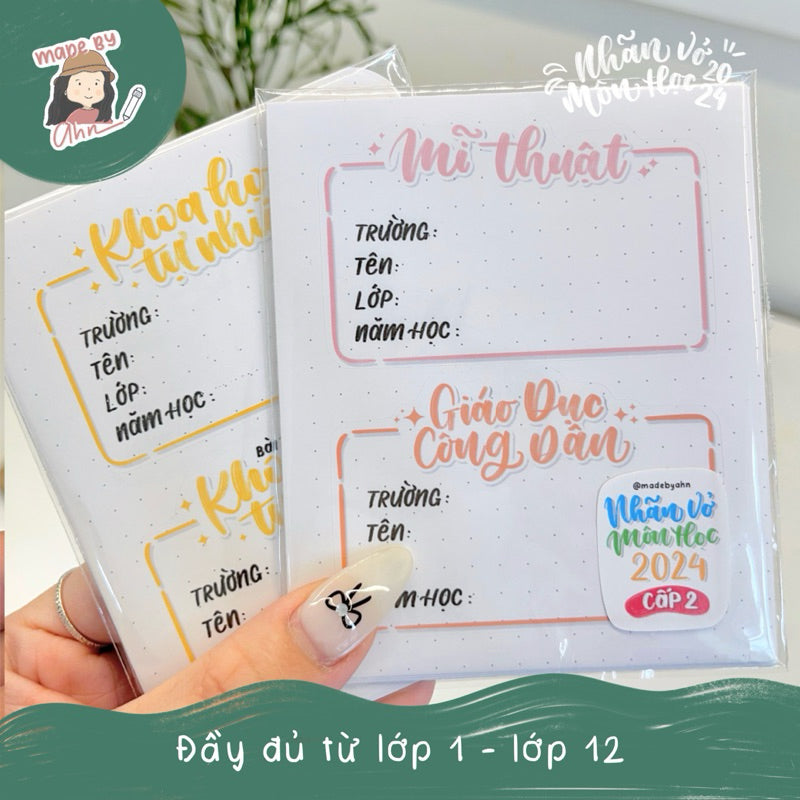 MADE BY
ahn
Nhãn vở
Môn Học
2024
Mĩ thuật
TRƯỜNG:
TÊN:
LỚP:
NĂM HỌC:
Giáo Dục
Công Dân
TRƯỜNG:
TÊN:
M HỌC:
@madebyahn
Nhãn vở
Môn Học
2024
CẤP 2
Khoa họ
tự nhi
TRƯỜNG:
TÊN:
LỚP:
NĂM HỌC:
TRƯỜNG:
TÊN:
Đầy đủ từ lớp 1 - lớp 12